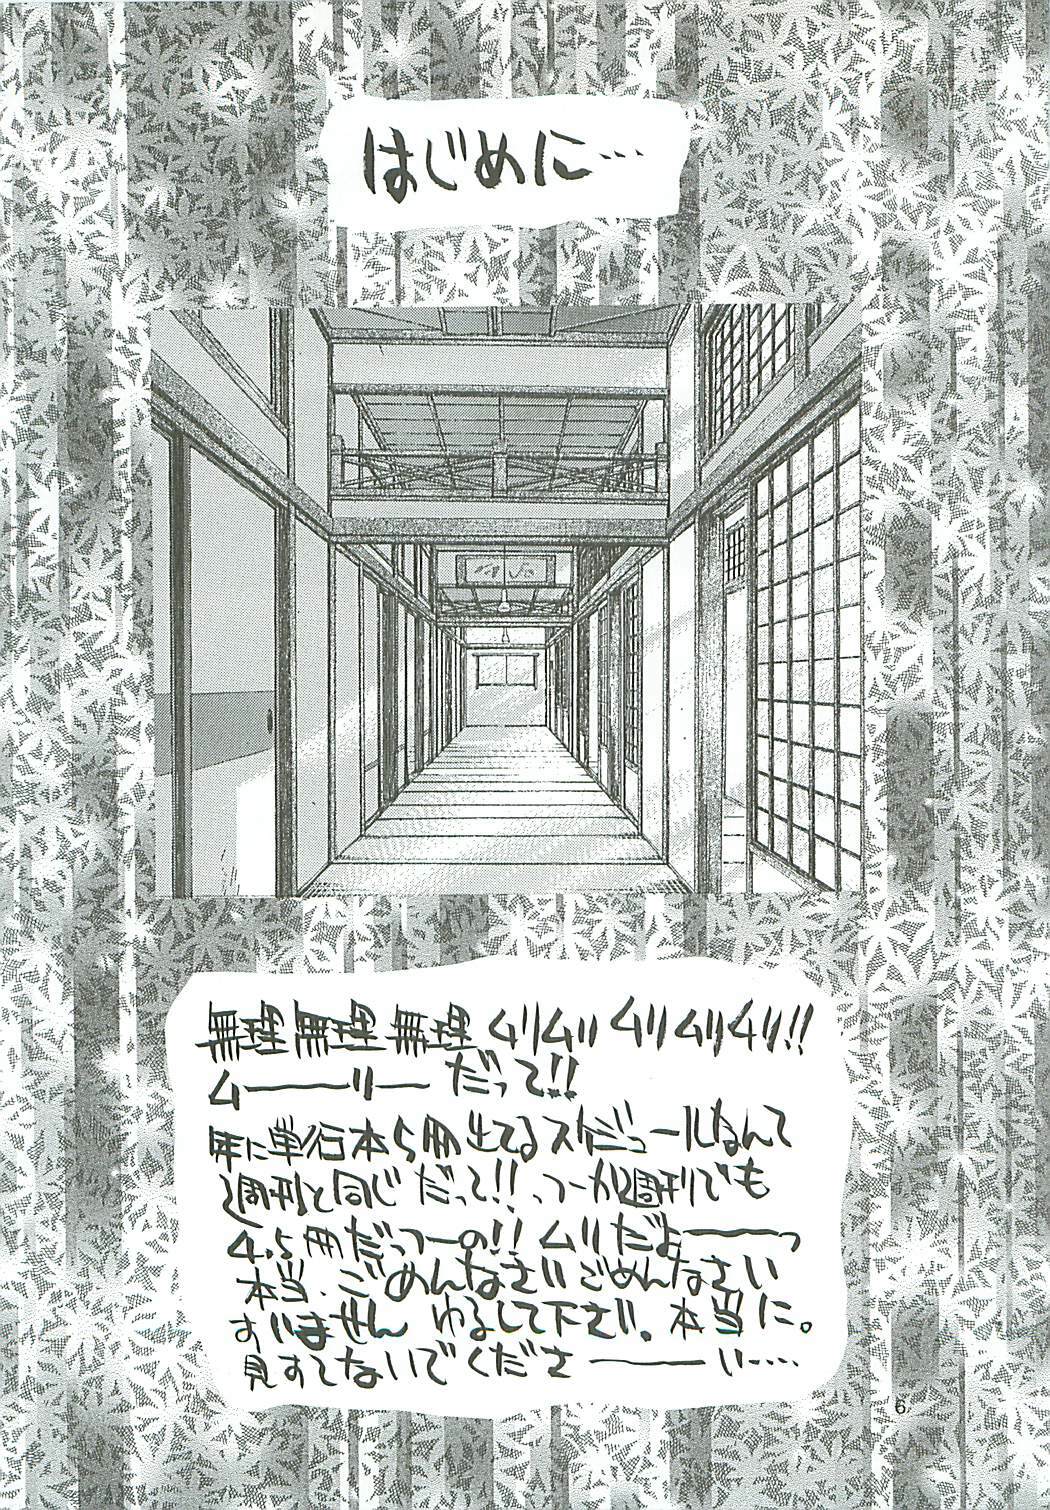 はじめに…
無理無理無理ムリムリムリムリムリ!!
ム――リ―だって!!
年に単行本5冊出てるスケジュールなんて
週刊と同じだって!!っつーか週刊でも
4.5冊だっつーの!!ムリだよ――っ
本当、ごめんなさいごめんなさい
すいません ゆるして下さい。本当に。
見すてないでくださ――い……
6